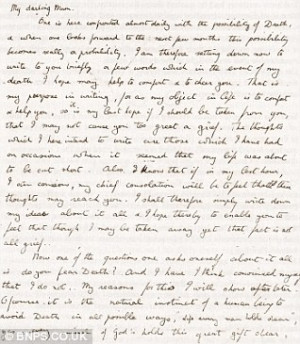 My darling Mum.
One is here confronted almost daily with the possibility of Death,
& when one looks forward to the next few months this possibility
becomes really a probability. I am therefore sitting down now to
write to you briefly a few words which in the event of my
death I hope may help to comfort & to cheer you. That is
my purpose in writing, for as my object in life is to comfort
& help you, so it is my last hope if I should be taken from you,
that I may not cause you too great a grief. The thoughts
which I here intend to write are those which I have had
on occasions when it seemed that my life was about
to be cut short. Also, I know that if in my last hour,
I am conscious, my chief consolation will be to feel that these
thoughts may reach you. I shall therefore simply write down
my ideas about it all & I hope thereby to enable you to
feel that though I may be taken away yet that fact is not
all grief.
Now one of the questions one asks oneself about it all
is do you fear Death? And I have I think convinced myself
that I do not. My reasons for this I will show after
O course it is the natural instinct of a human being to
avoid Death in all possible ways,
of God's holds this great gift clear,
© BNPS.CO.UK